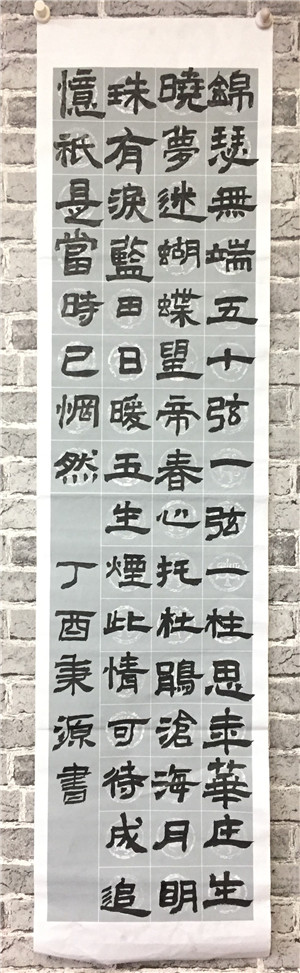 錦瑟無端五十弦一弦一柱思年華庄生
曉夢迷蝴蝶望帝春心托杜鵑滄海月明
珠有淚藍田日暖玉生煙此情可待成追
憶祇是當時已惘然 丁酉秉源書